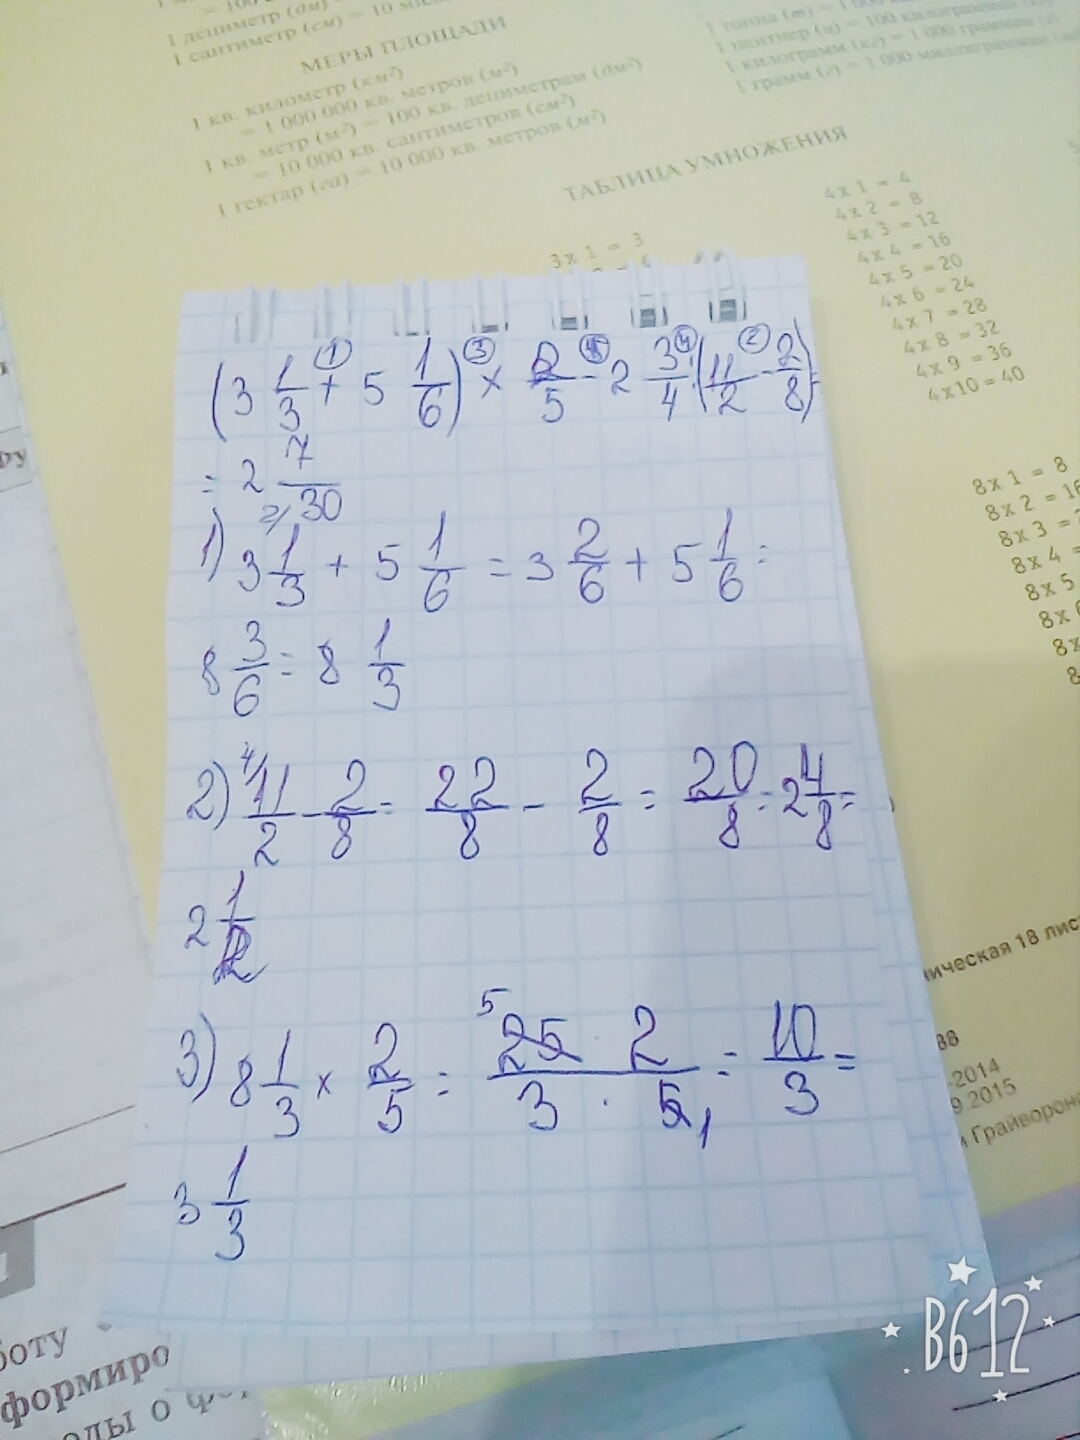 1 дециметр (дм) =
1 сантиметр (см) = 10
МЕРЫ ПЛОЩАДИ
1 кв. километр (км²)
= 1 000 000 кв. метров (м²)
1 кв. метр (м²) = 100 кв. дециметрам (дм²)
= 10 000 кв. сантиметров (см²)
1 гектар (га) = 10 000 кв. метров (м²)
1 тонна (т) = 1 000
1 центнер (ц) = 100 килограммам
1 килограмм (кг) = 1 000 граммам
1 грамм (г) = 1 000 миллиграммам
ТАБЛИЦА УМНОЖЕНИЯ
3x 1 = 3
4x 1 = 4
4x 2 = 8
4x 3 = 12
4x 4 = 16
4x 5 = 20
4x 6 = 24
4x 7 = 28
4x 8 = 32
4x 9 = 36
4x10 = 40
8x 1 = 8
8x 2 = 16
8x 3 =
8x 4 =
8x 5
8x
8x
(3 1/3 + 5 1/6) × 2/5 - 2 3/4 : (11/2 - 2/8) =
= 2 7/30
1) 3 1/3 + 5 1/6 = 3 2/6 + 5 1/6 =
8 3/6 = 8 1/3
2) 11/2 - 2/8 = 22/8 - 2/8 = 20/8 = 2 4/8 =
2 1/2
3) 8 1/3 × 2/5 = 25 · 2 / 3 · 5 = 10/3 =
3 1/3
ическая 18 лист
88
-2014
9.2015
Грайворонс
боту
формиро
оды о
B612